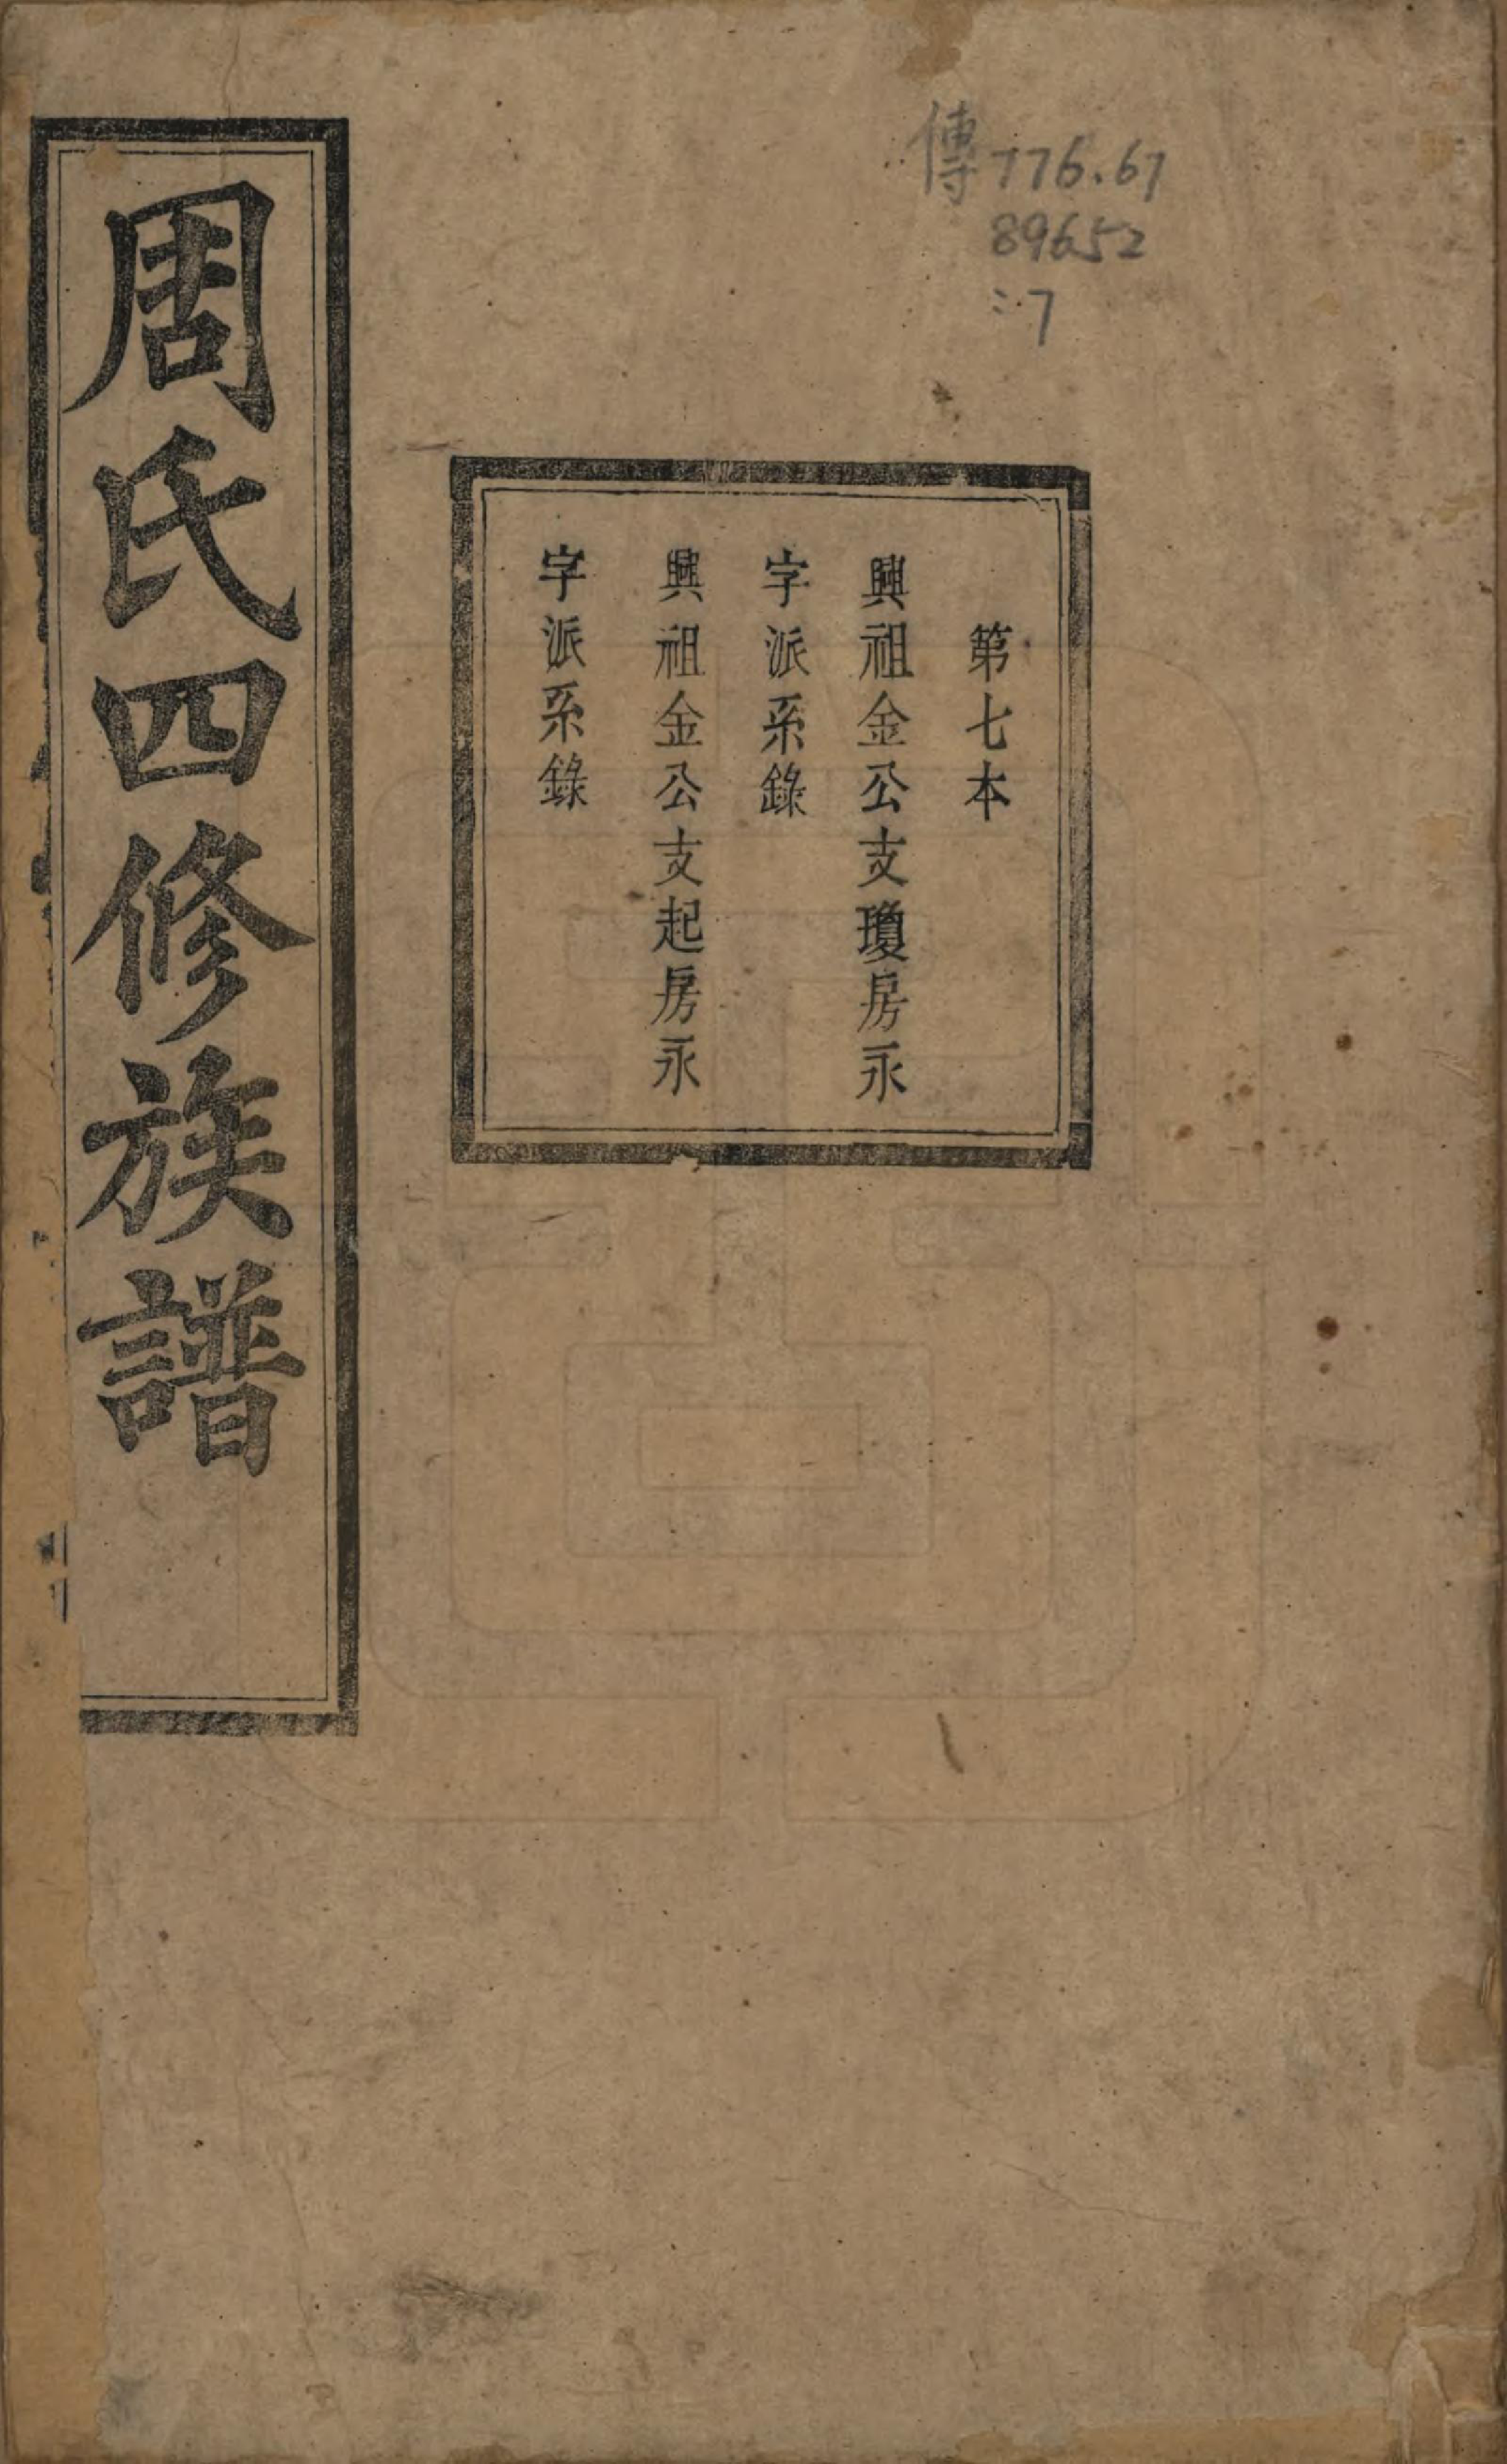 傳776.67
89652
:7
第七本
興祖金公支瓊房永
字派系錄
興祖金公支起房永
字派系錄
周氏四修族譜